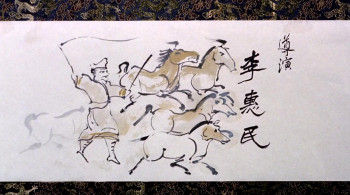 導演
李惠民